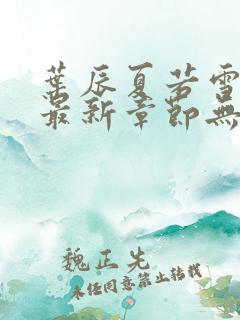 葉辰夏若雪
最新章節無
魏正先
未經同意禁止轉載